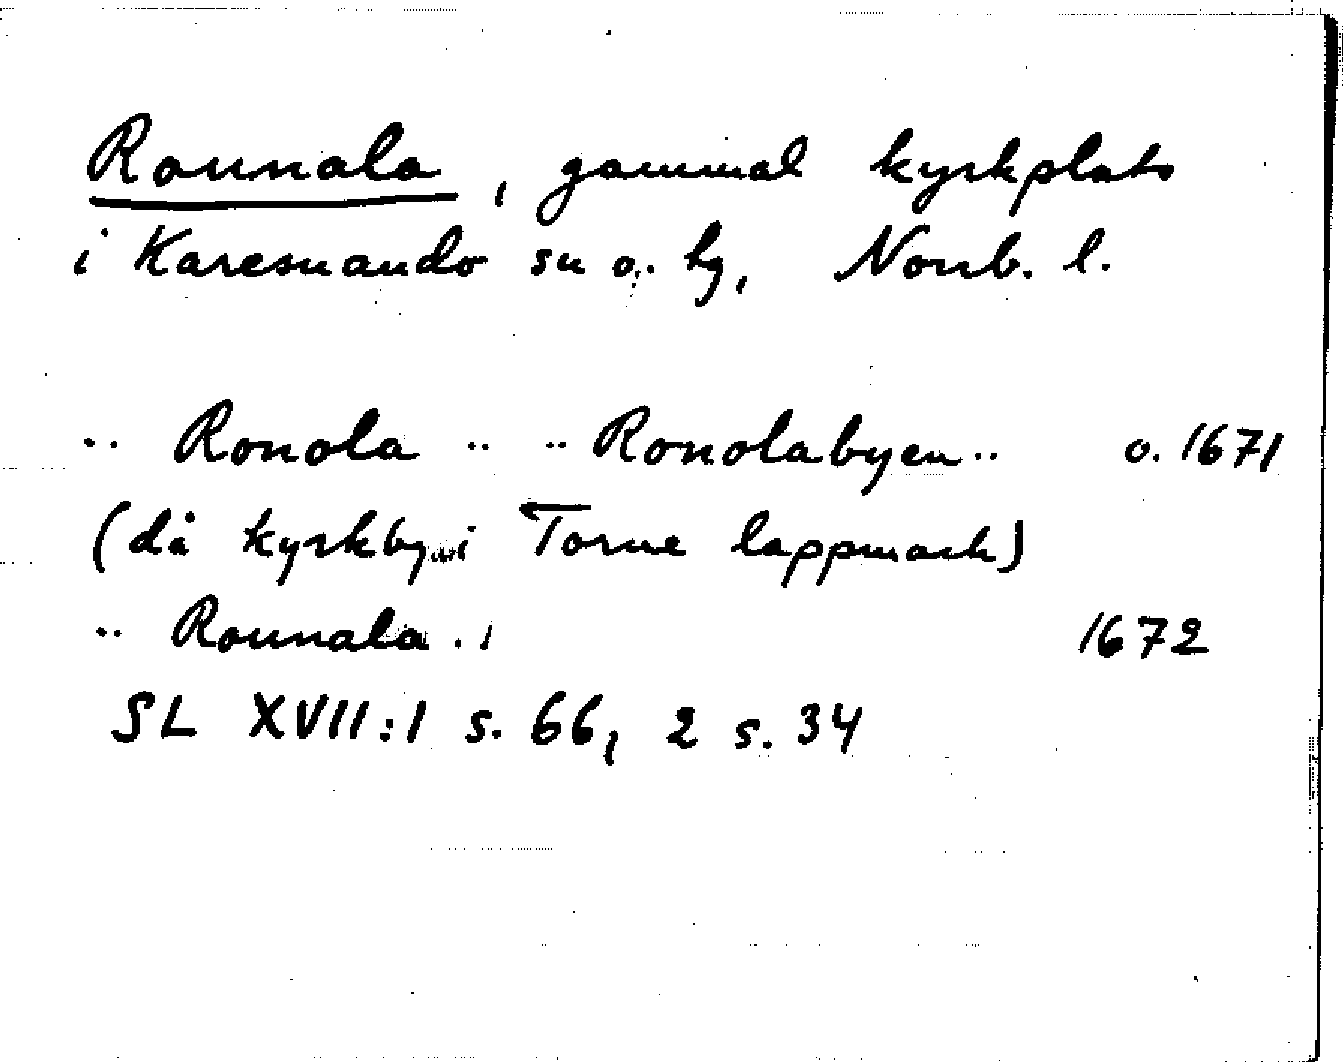 Rounala, gammal kyrkplats
i Karesuando sn o. hg, Norrb. l.
.. Ronola .. .. Ronolabyen .. o. 1671
(då kyrkby i Torne lappmark)
.. Rounala .. 1672
SL XVII:1 s. 66, 2 s. 34